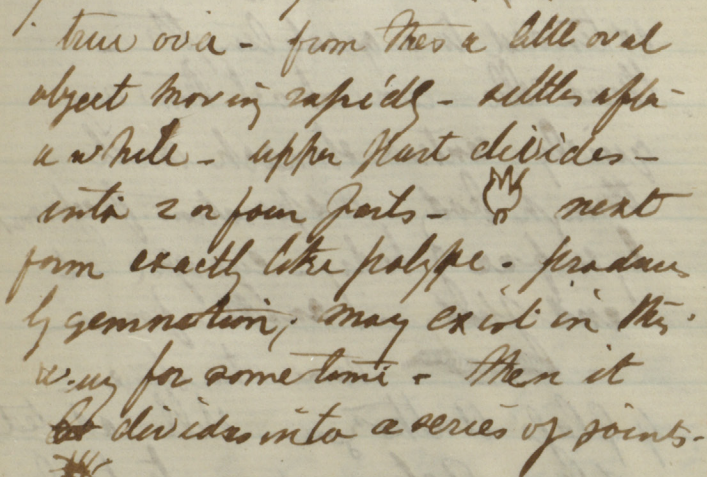 true ova - from this a little oval
object moving rapidly - settles after
a while - upper part divides -
into 2 or four parts - next
form exactly like polype - produces
by gemmation, may exist in this
way for some time - then it
divides into a series of joints -